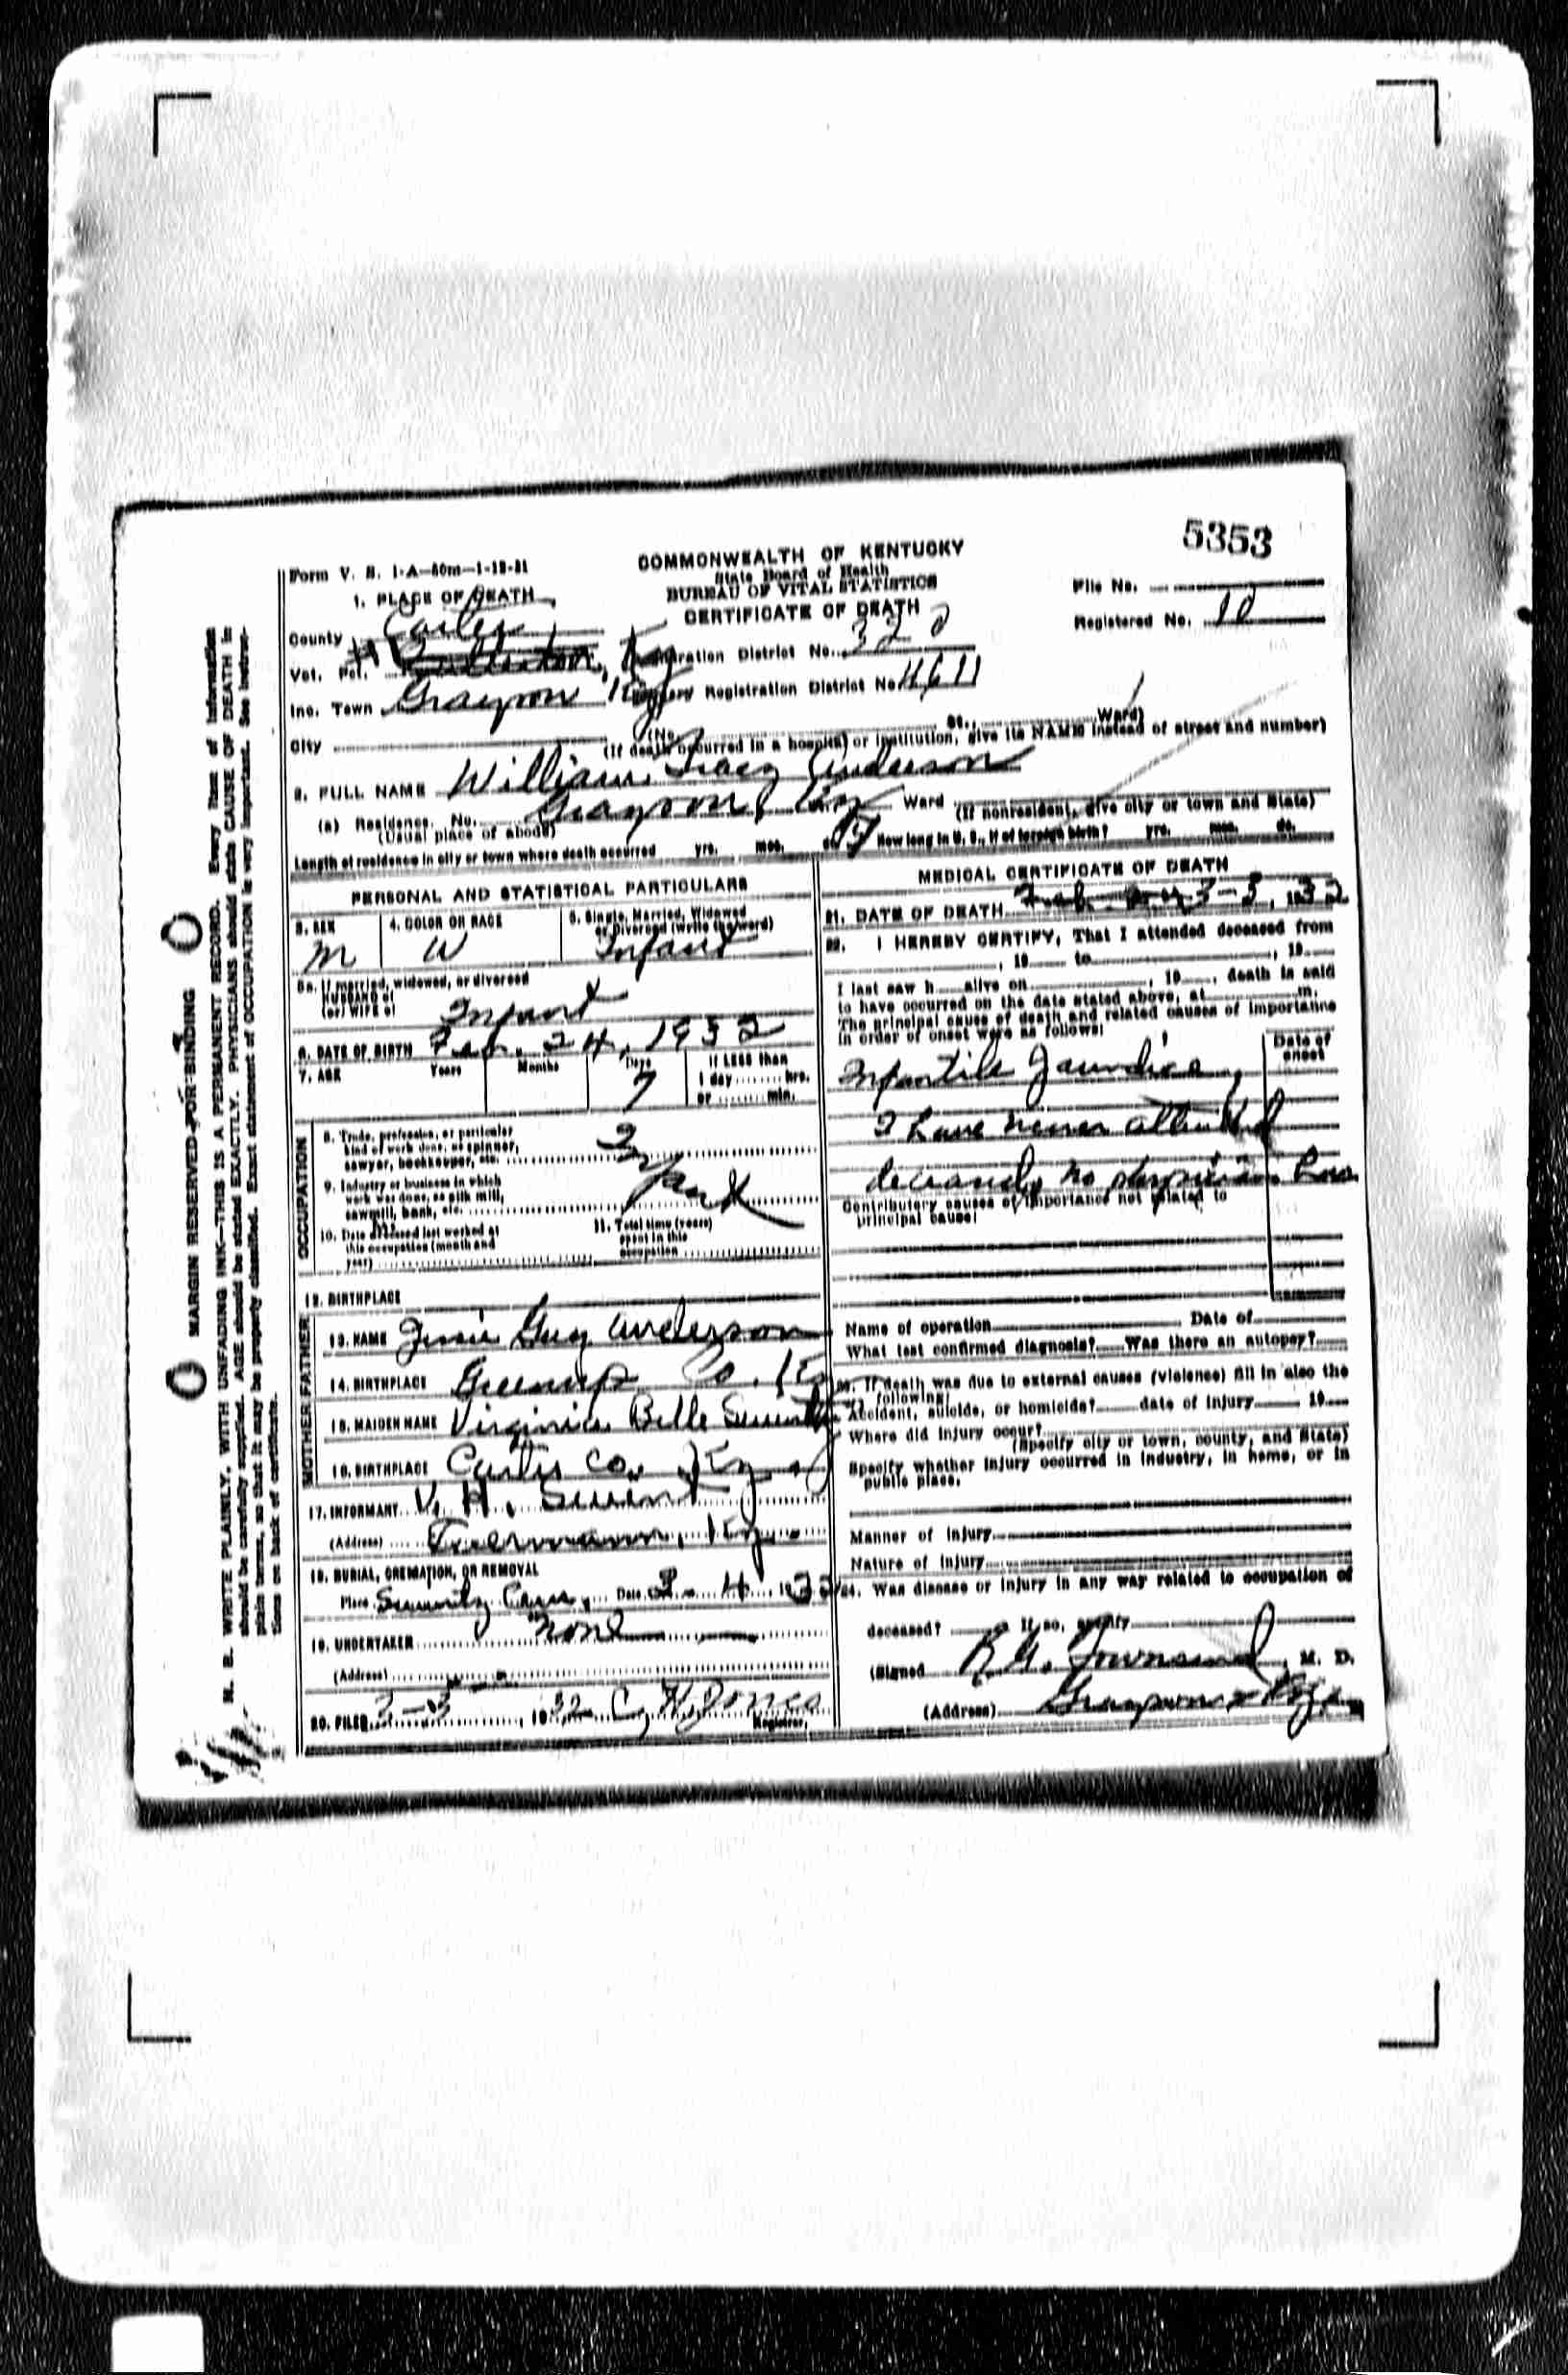 5353
Form V. S. 1-A—50m—1-12-31
COMMONWEALTH OF KENTUCKY
State Board of Health
BUREAU OF VITAL STATISTICS
CERTIFICATE OF DEATH
File No.
Registered No. 10
1. PLACE OF DEATH
County Carter
Vot. Pct.
Registration District No. 320
Inc. Town Grayson Ky
Primary Registration District No. 4611
City (No. St., Ward)
(If death occurred in a hospital or institution, give its NAME instead of street and number)
2. FULL NAME William Tracy Anderson
(a) Residence. No. Grayson, Ky Ward
(Usual place of abode) (If nonresident, give city or town and State)
Length of residence in city or town where death occurred yrs. mos. ds. How long in U. S., if of foreign birth? yrs. mos. ds.
PERSONAL AND STATISTICAL PARTICULARS
3. SEX M
4. COLOR OR RACE W
5. Single, Married, Widowed or Divorced (write the word) Infant
5a. If married, widowed, or divorced
HUSBAND of
(or) WIFE of Infant
6. DATE OF BIRTH Feb. 24, 1932
7. AGE Years Months Days 7 If LESS than 1 day hrs. or min.
OCCUPATION
8. Trade, profession, or particular kind of work done, as spinner, sawyer, bookkeeper, etc.
9. Industry or business in which work was done, as silk mill, sawmill, bank, etc.
10. Date deceased last worked at this occupation (month and year)
11. Total time (years) spent in this occupation
12. BIRTHPLACE
FATHER
13. NAME Jessie Guy Anderson
14. BIRTHPLACE Greenup Co. Ky
MOTHER
15. MAIDEN NAME Virginia Belle
16. BIRTHPLACE Carter Co., Ky
17. INFORMANT V. H.
(Address) Ky.
18. BURIAL, CREMATION, OR REMOVAL
Place Cem. Date 3-4, 1932
19. UNDERTAKER none
(Address)
20. FILED 3-3, 1932 C. H. Jones
Registrar.
MEDICAL CERTIFICATE OF DEATH
21. DATE OF DEATH 3-3, 1932
22. I HEREBY CERTIFY, That I attended deceased from
, 19 to , 19
I last saw h alive on , 19 , death is said
to have occurred on the date stated above, at m.
The principal cause of death and related causes of importance
in order of onset were as follows:
Date of onset
Infantile Jaundice,
I have never attended
deceased, no physician has
Contributory causes of importance not related to
principal cause:
Name of operation Date of
What test confirmed diagnosis? Was there an autopsy?
23. If death was due to external causes (violence) fill in also the
following:
Accident, suicide, or homicide? date of injury 19
Where did injury occur?
(Specify city or town, county, and State)
Specify whether injury occurred in industry, in home, or in
public place.
Manner of injury
Nature of injury
24. Was disease or injury in any way related to occupation of
deceased? If so, specify
(Signed R. G. Townsend, M. D.
(Address) Grayson Ky.
MARGIN RESERVED FOR BINDING
N. B. WRITE PLAINLY, WITH UNFADING INK—THIS IS A PERMANENT RECORD. Every item of information
should be carefully supplied. AGE should be stated EXACTLY. PHYSICIANS should state CAUSE OF DEATH in
plain terms, so that it may be properly classified. Exact statement of OCCUPATION is very important. See instruc-
tions on back of certificate.